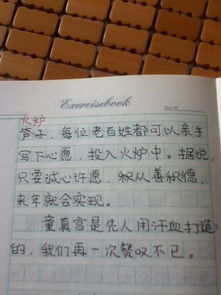 Exercisebook
DATE
火炉
等子，每位老百姓都可以亲手
写下心愿，投入火炉中。据说，
只要诚心许愿，积从善积德，
来年就会实现。
童真宫是先人用汗血打造
的，我们再一次赞叹不已。